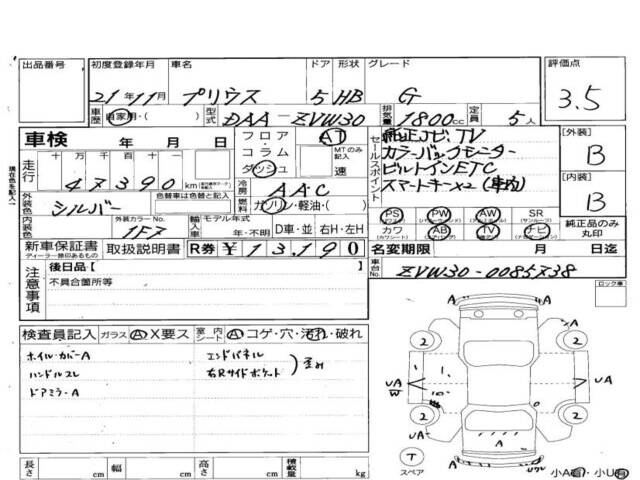 出品番号 初度登録年月 車名 ドア 形状 グレード 評価点
21年11月 プリウス 5 HB G 3.5
車歴 自家用・( ) 型式 DAA-ZVW30 排気量 1800cc 定員 5人
車検 年 月 日
フロア AT
コラム MTのみ記入
ダッシュ 速
セールスポイント
純正ナビ、TV
カラーバックモニター
ビルトインETC
スマートキー×2(車内)
[外装] B
[内装] B
走行 十万 万 千 百 十 一
47390 km
冷房 AAC
燃料 ガソリン・軽油・( )
外装色 シルバー 色替車は元色を記入
内装色 外装カラーNo. 1F7
輸入車 モデル年式 年・不明 D車・並 右H・左H
PS PW AW SR
カワ AB TV ナビ
純正品のみ丸印
新車保証書 取扱説明書 R券 ¥13,190
ディーラー捺印あるもの
名変期限 月 日迄
車台No. ZVW30-0085738
注意事項 後日品【 】
不具合箇所等
ロック車
検査員記入 ガラス A X要ス 室内 シート A コゲ・穴・汚れ・破れ
ホイルカバーA エンドパネル
ハンドルスレ 右Rサイドポケット 歪み
ドアミラーA
A
2 2
A
UA
W
1.
1.
A
2 2
UA A A
T
スペア
A A Uワレ
小A有・小U有
長さ cm 幅 cm 高さ cm 積載量 kg